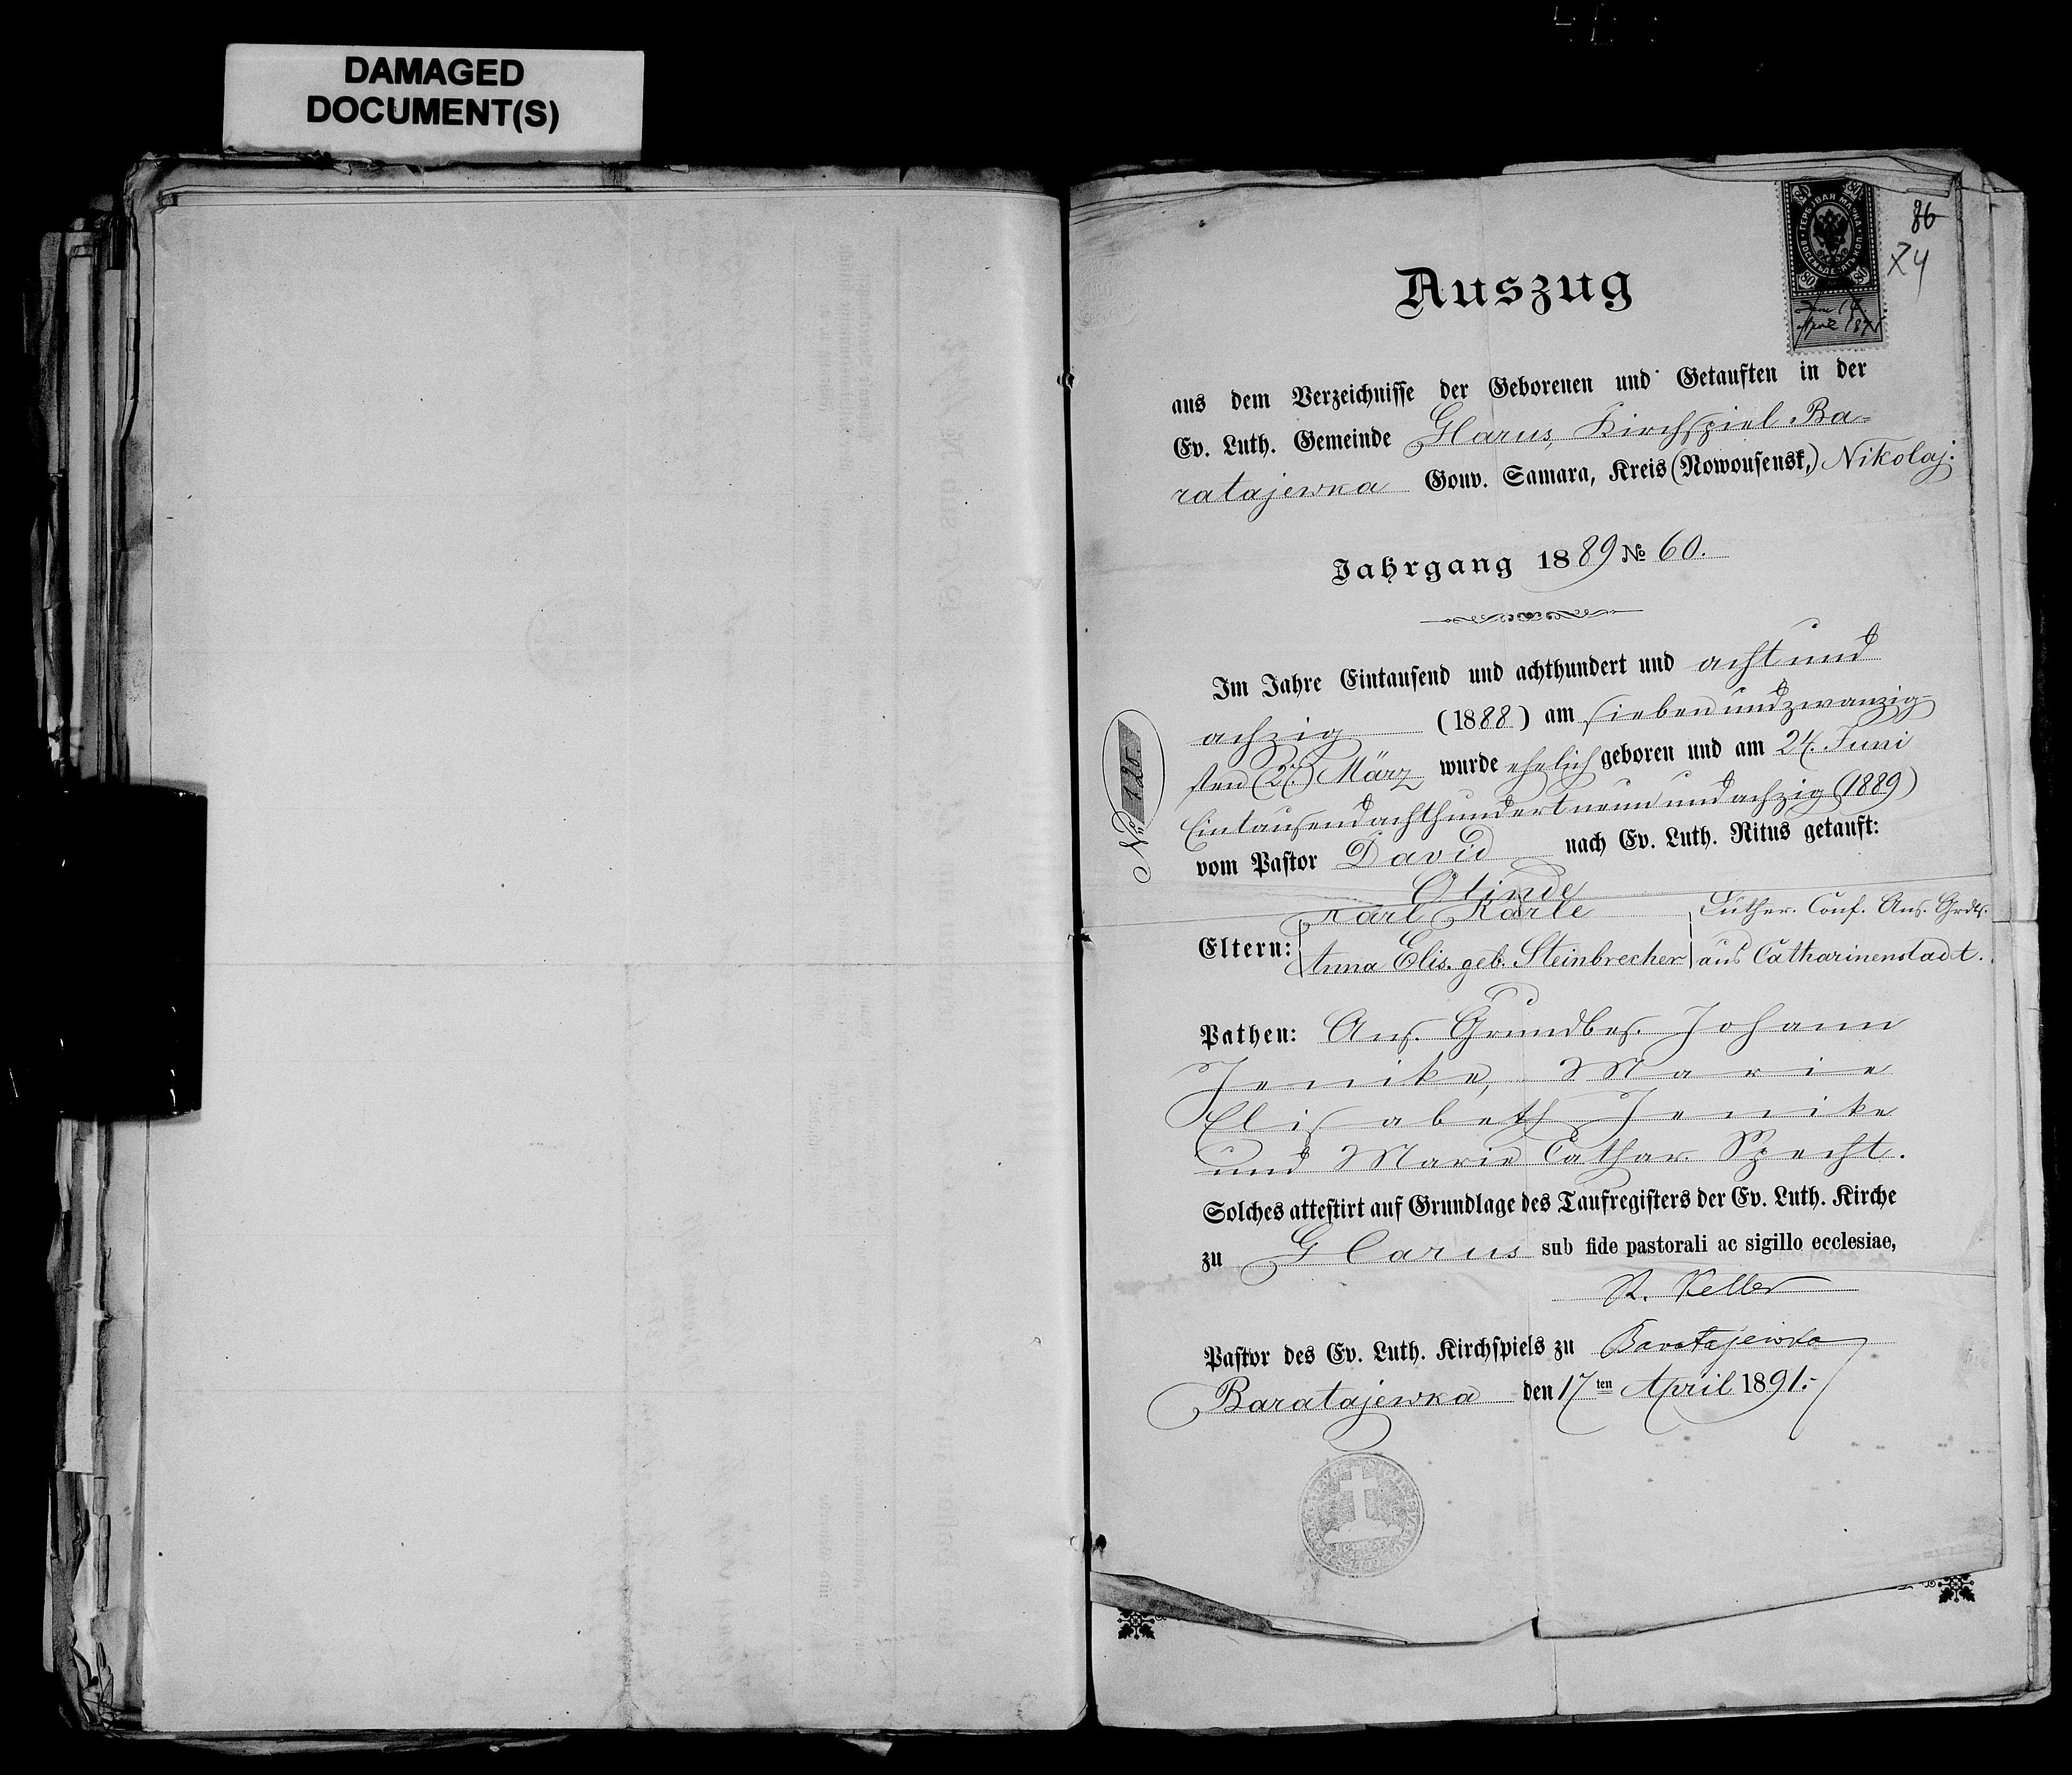 DAMAGED
DOCUMENT(S)
86
74
ГЕРБОВАЯ МАРКА
ВОСЕМЬДЕСЯТЪ КОП.
80 80
80 80
April 1891
Auszug
aus dem Verzeichnisse der Geborenen und Getauften in der
Ev. Luth. Gemeinde Glarus, Kirchspiel Ba-
ratajewka Gouv. Samara, Kreis (Nowousensk,) Nikolaj.
Jahrgang 1889 № 60.
Im Jahre Eintausend und achthundert und acht und
achzig (1888) am siebenundzwanzig-
sten (27.) März wurde ehelich geboren und am 24. Juni
Eintausendachthundertneunundachzig (1889)
vom Pastor David nach Ev. Luth. Ritus getauft:
№ 120.
Olinde
Eltern: Karl Karle Luther. Conf. Ans. Grdb.
Anna Elis. geb. Steinbrecher aus Catharinenstadt.
Pathen: Ans. Grundbes. Johann
Jenike, Marie
Elisabeth Jenike
und Marie Cathar. Specht.
Solches attestirt auf Grundlage des Taufregisters der Ev. Luth. Kirche
zu Glarus sub fide pastorali ac sigillo ecclesiae,
R. Keller
Pastor des Ev. Luth. Kirchspiels zu Baratajewka
Baratajewka den 17ten April 1891.